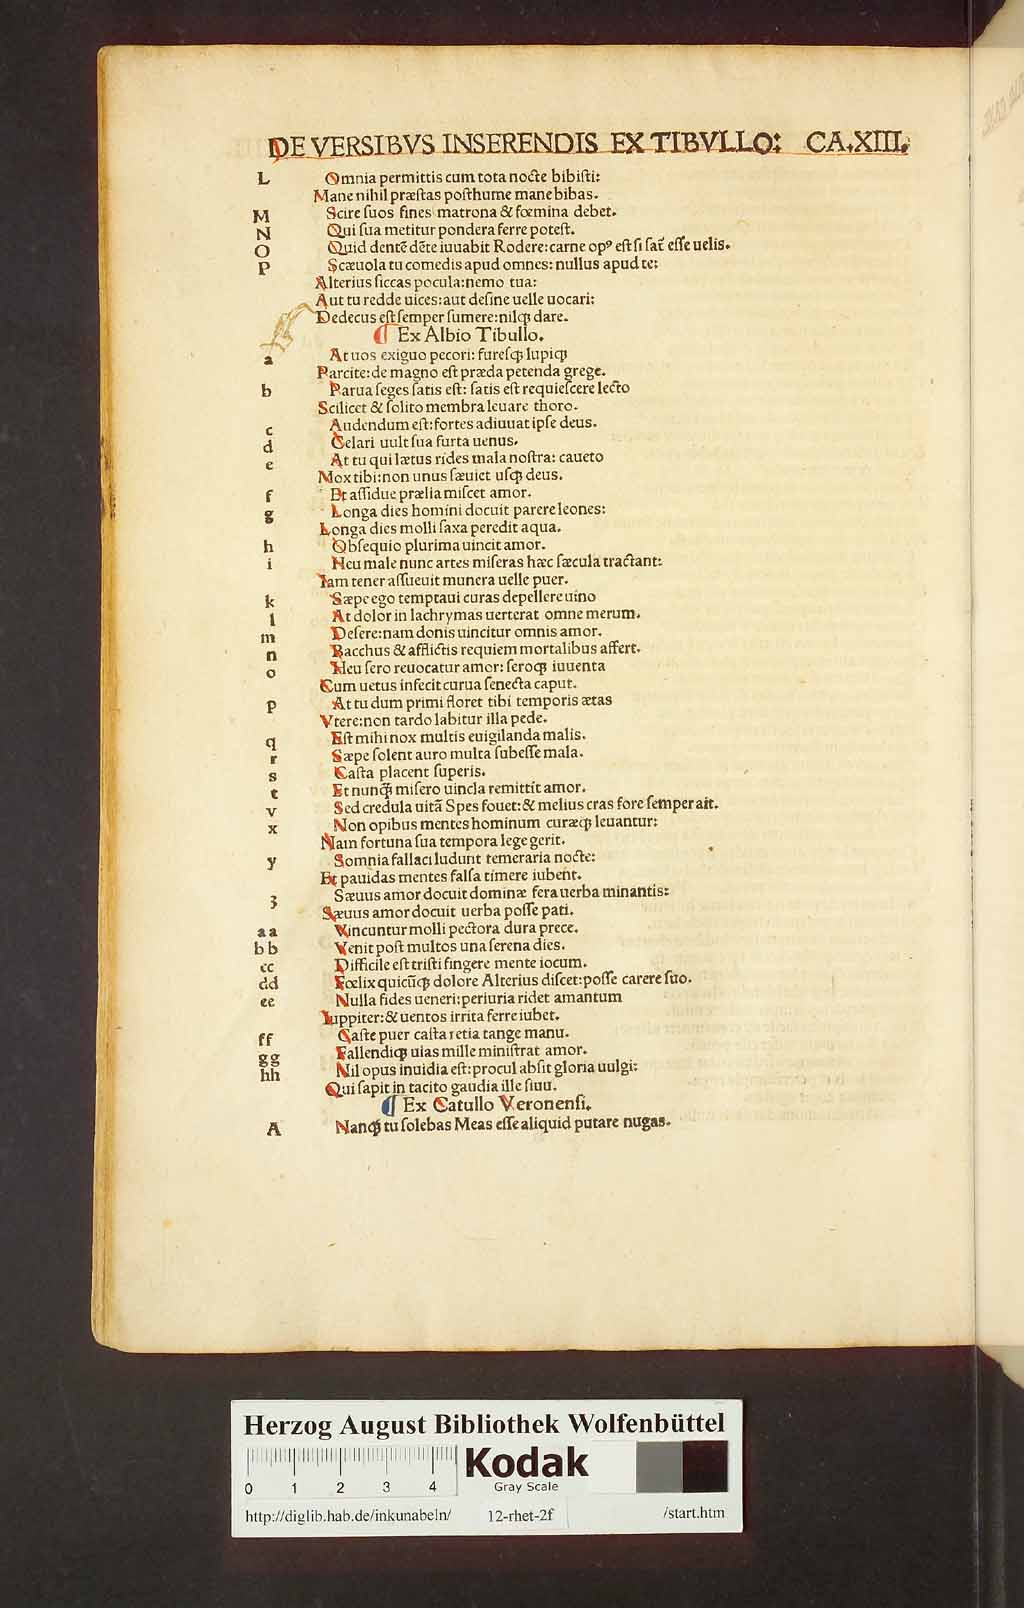 DE VERSIBVS INSERENDIS EX TIBVLLO: CA.XIII.
L Omnia permittis cum tota nocte bibisti:
Mane nihil præstas posthume mane bibas.
M Scire suos fines matrona & fœmina debet.
N Qui sua metitur pondera ferre potest.
O Quid dentē dēte iuuabit Rodere: carne opꝰ est si sat̄ esse uelis.
P Scæuola tu comedis apud omnes: nullus apud te:
Alterius siccas pocula: nemo tua:
Aut tu redde uices: aut desine uelle uocari:
Dedecus est semper sumere: nilqꝫ dare.
¶ Ex Albio Tibullo.
a At uos exiguo pecori: furesqꝫ lupiqꝫ
Parcite: de magno est præda petenda grege.
b Parua seges satis est: satis est requiescere lecto
Scilicet & solito membra leuare thoro.
c Audendum est: fortes adiuuat ipse deus.
d Celari uult sua furta uenus.
e At tu qui lætus rides mala nostra: caueto
Mox tibi: non unus sæuiet usqꝫ deus.
f Et assidue prælia miscet amor.
g Longa dies homini docuit parere leones:
Longa dies molli saxa peredit aqua.
h Obsequio plurima uincit amor.
i Heu male nunc artes miseras hæc sæcula tractant:
Iam tener assueuit munera uelle puer.
k Sæpe ego temptaui curas depellere uino
l At dolor in lachrymas uerterat omne merum.
m Desere: nam donis uincitur omnis amor.
n Bacchus & afflictis requiem mortalibus affert.
o Heu sero reuocatur amor: seroqꝫ iuuenta
Cum uetus infecit curua senecta caput.
p At tu dum primi floret tibi temporis ætas
Vtere: non tardo labitur illa pede.
q Est mihi nox multis euigilanda malis.
r Sæpe solent auro multa subesse mala.
s Casta placent superis.
t Et nunqꝫ misero uincla remittit amor.
v Sed credula uitā Spes fouet: & melius cras fore semper ait.
x Non opibus mentes hominum curæqꝫ leuantur:
Nam fortuna sua tempora lege gerit.
y Somnia fallaci ludunt temeraria nocte:
Et pauidas mentes falsa timere iubent.
ꝫ Sæuus amor docuit dominæ fera uerba minantis:
Sæuus amor docuit uerba posse pati.
aa Vincuntur molli pectora dura prece.
bb Venit post multos una serena dies.
cc Difficile est tristi fingere mente iocum.
dd Fœlix quicūqꝫ dolore Alterius discet: posse carere suo.
ee Nulla fides ueneri: periuria ridet amantum
Iuppiter: & uentos irrita ferre iubet.
ff Caste puer casta retia tange manu.
gg Fallendiqꝫ uias mille ministrat amor.
hh Nil opus inuidia est: procul absit gloria uulgi:
Qui sapit in tacito gaudia ille siuu.
¶ Ex Catullo Veronensi.
A Nanqꝫ tu solebas Meas esse aliquid putare nugas.
Herzog August Bibliothek Wolfenbüttel
0 1 2 3 4 Kodak
Gray Scale
http://diglib.hab.de/inkunabeln/ 12-rhet-2f /start.htm